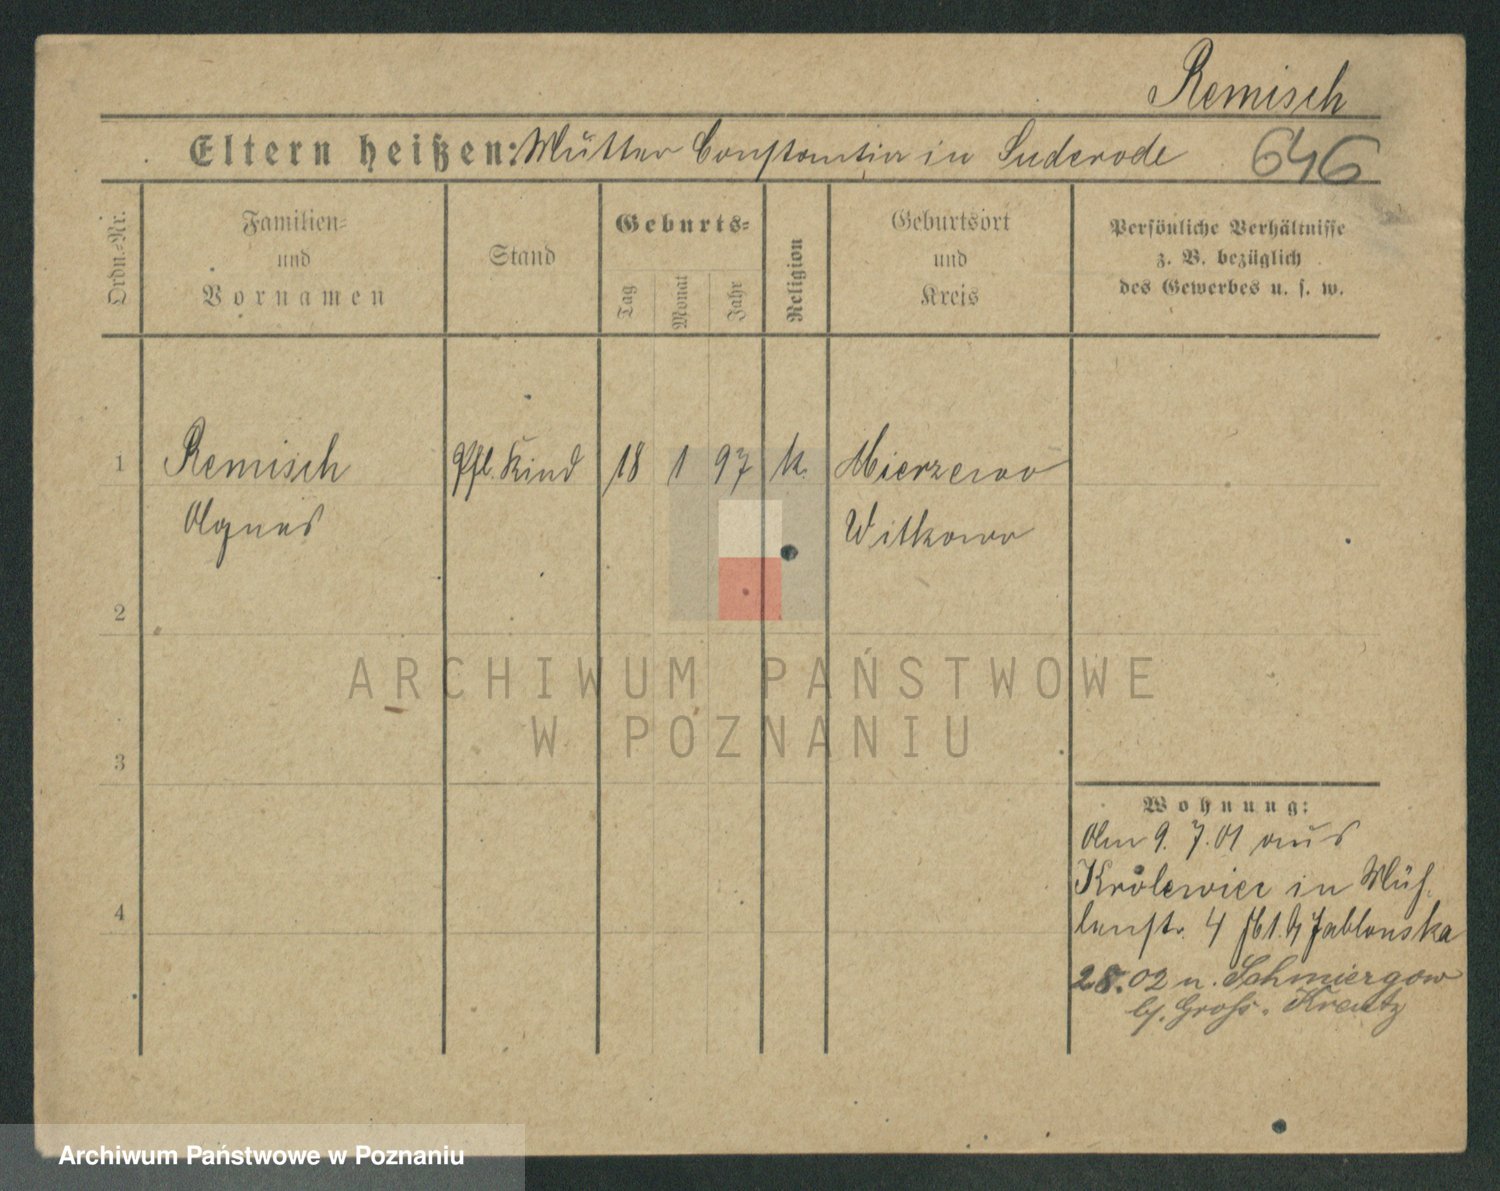 Remisch
Eltern heißen: Mutter Constantia in Suderode 646
Ordn.-Nr.
Familien-
und
Vornamen
Stand
Geburts-
Tag
Monat
Jahr
Religion
Geburtsort
und
Kreis
Persönliche Verhältnisse
z. B. bezüglich
des Gewerbes u. s. w.
1 Remisch Pfl. Kind 18 1 97 k. Mierzewo
Agnes Witkowo
2
3
4
ARCHIWUM PAŃSTWOWE
W POZNANIU
Wohnung:
Am 9. 7. 01 aus
Królewiec in Müh-
lenstr. 4 Jablonska
28. 02 n. Schmiergow
b/. Groß-Kreutz
Archiwum Państwowe w Poznaniu